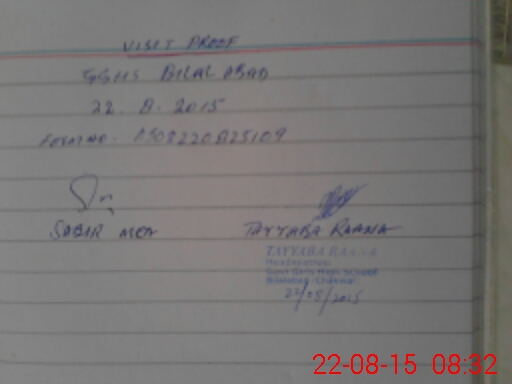 VISIT PROOF
GGHS BILAL ABAD
22. 8. 2015
FORM NO. A508220825109
SABIR MEA
TAYYABA RAANA
TAYYABA RAANA
Headmistress
Govt Girls High School
Bilalabad Chakwal
22/08/2015
22-08-15 08:32